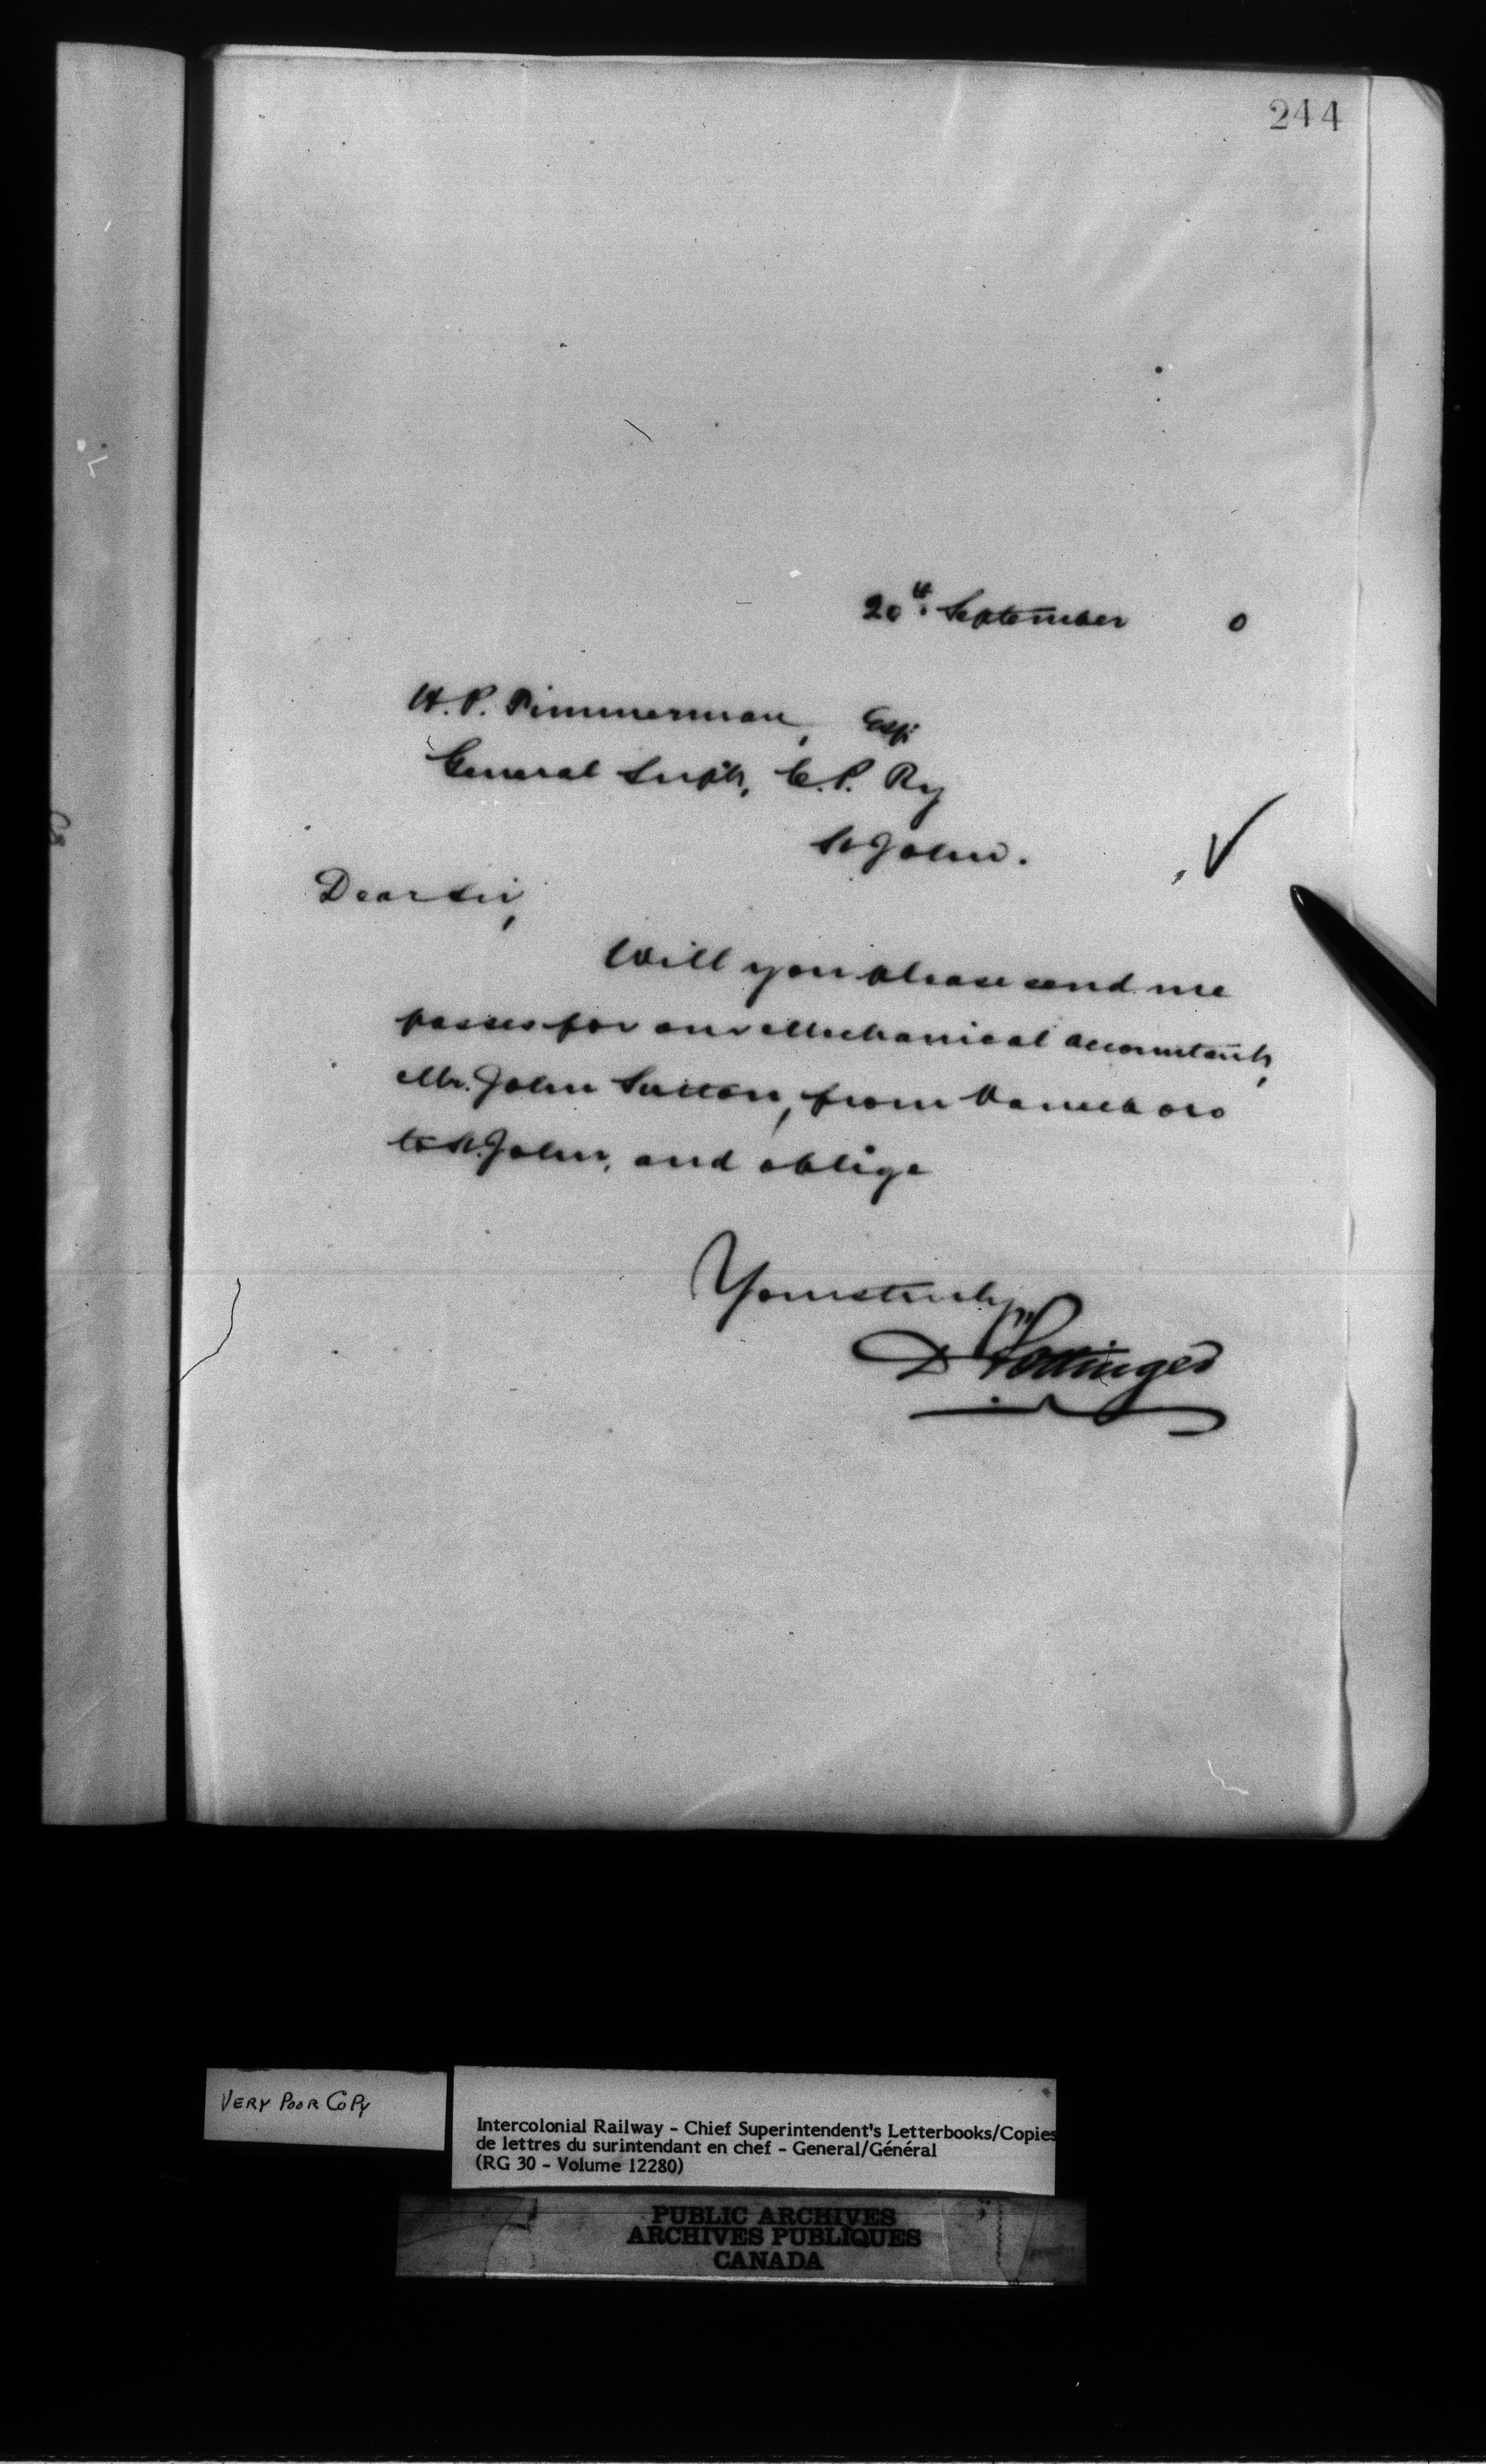 244
20th. September 0
H. P. Timmerman, Esq.
General Supt, C. P. Ry
St John.
Dear Sir,
Will you please send me
passes for our Mechanical Accountant,
Mr. John Sutton, from Vanceboro
to St. John, and oblige
Yours truly,
D Pottinger
VERY POOR COPY
Intercolonial Railway - Chief Superintendent's Letterbooks/Copies
de lettres du surintendant en chef - General/Général
(RG 30 - Volume 12280)
PUBLIC ARCHIVES
ARCHIVES PUBLIQUES
CANADA